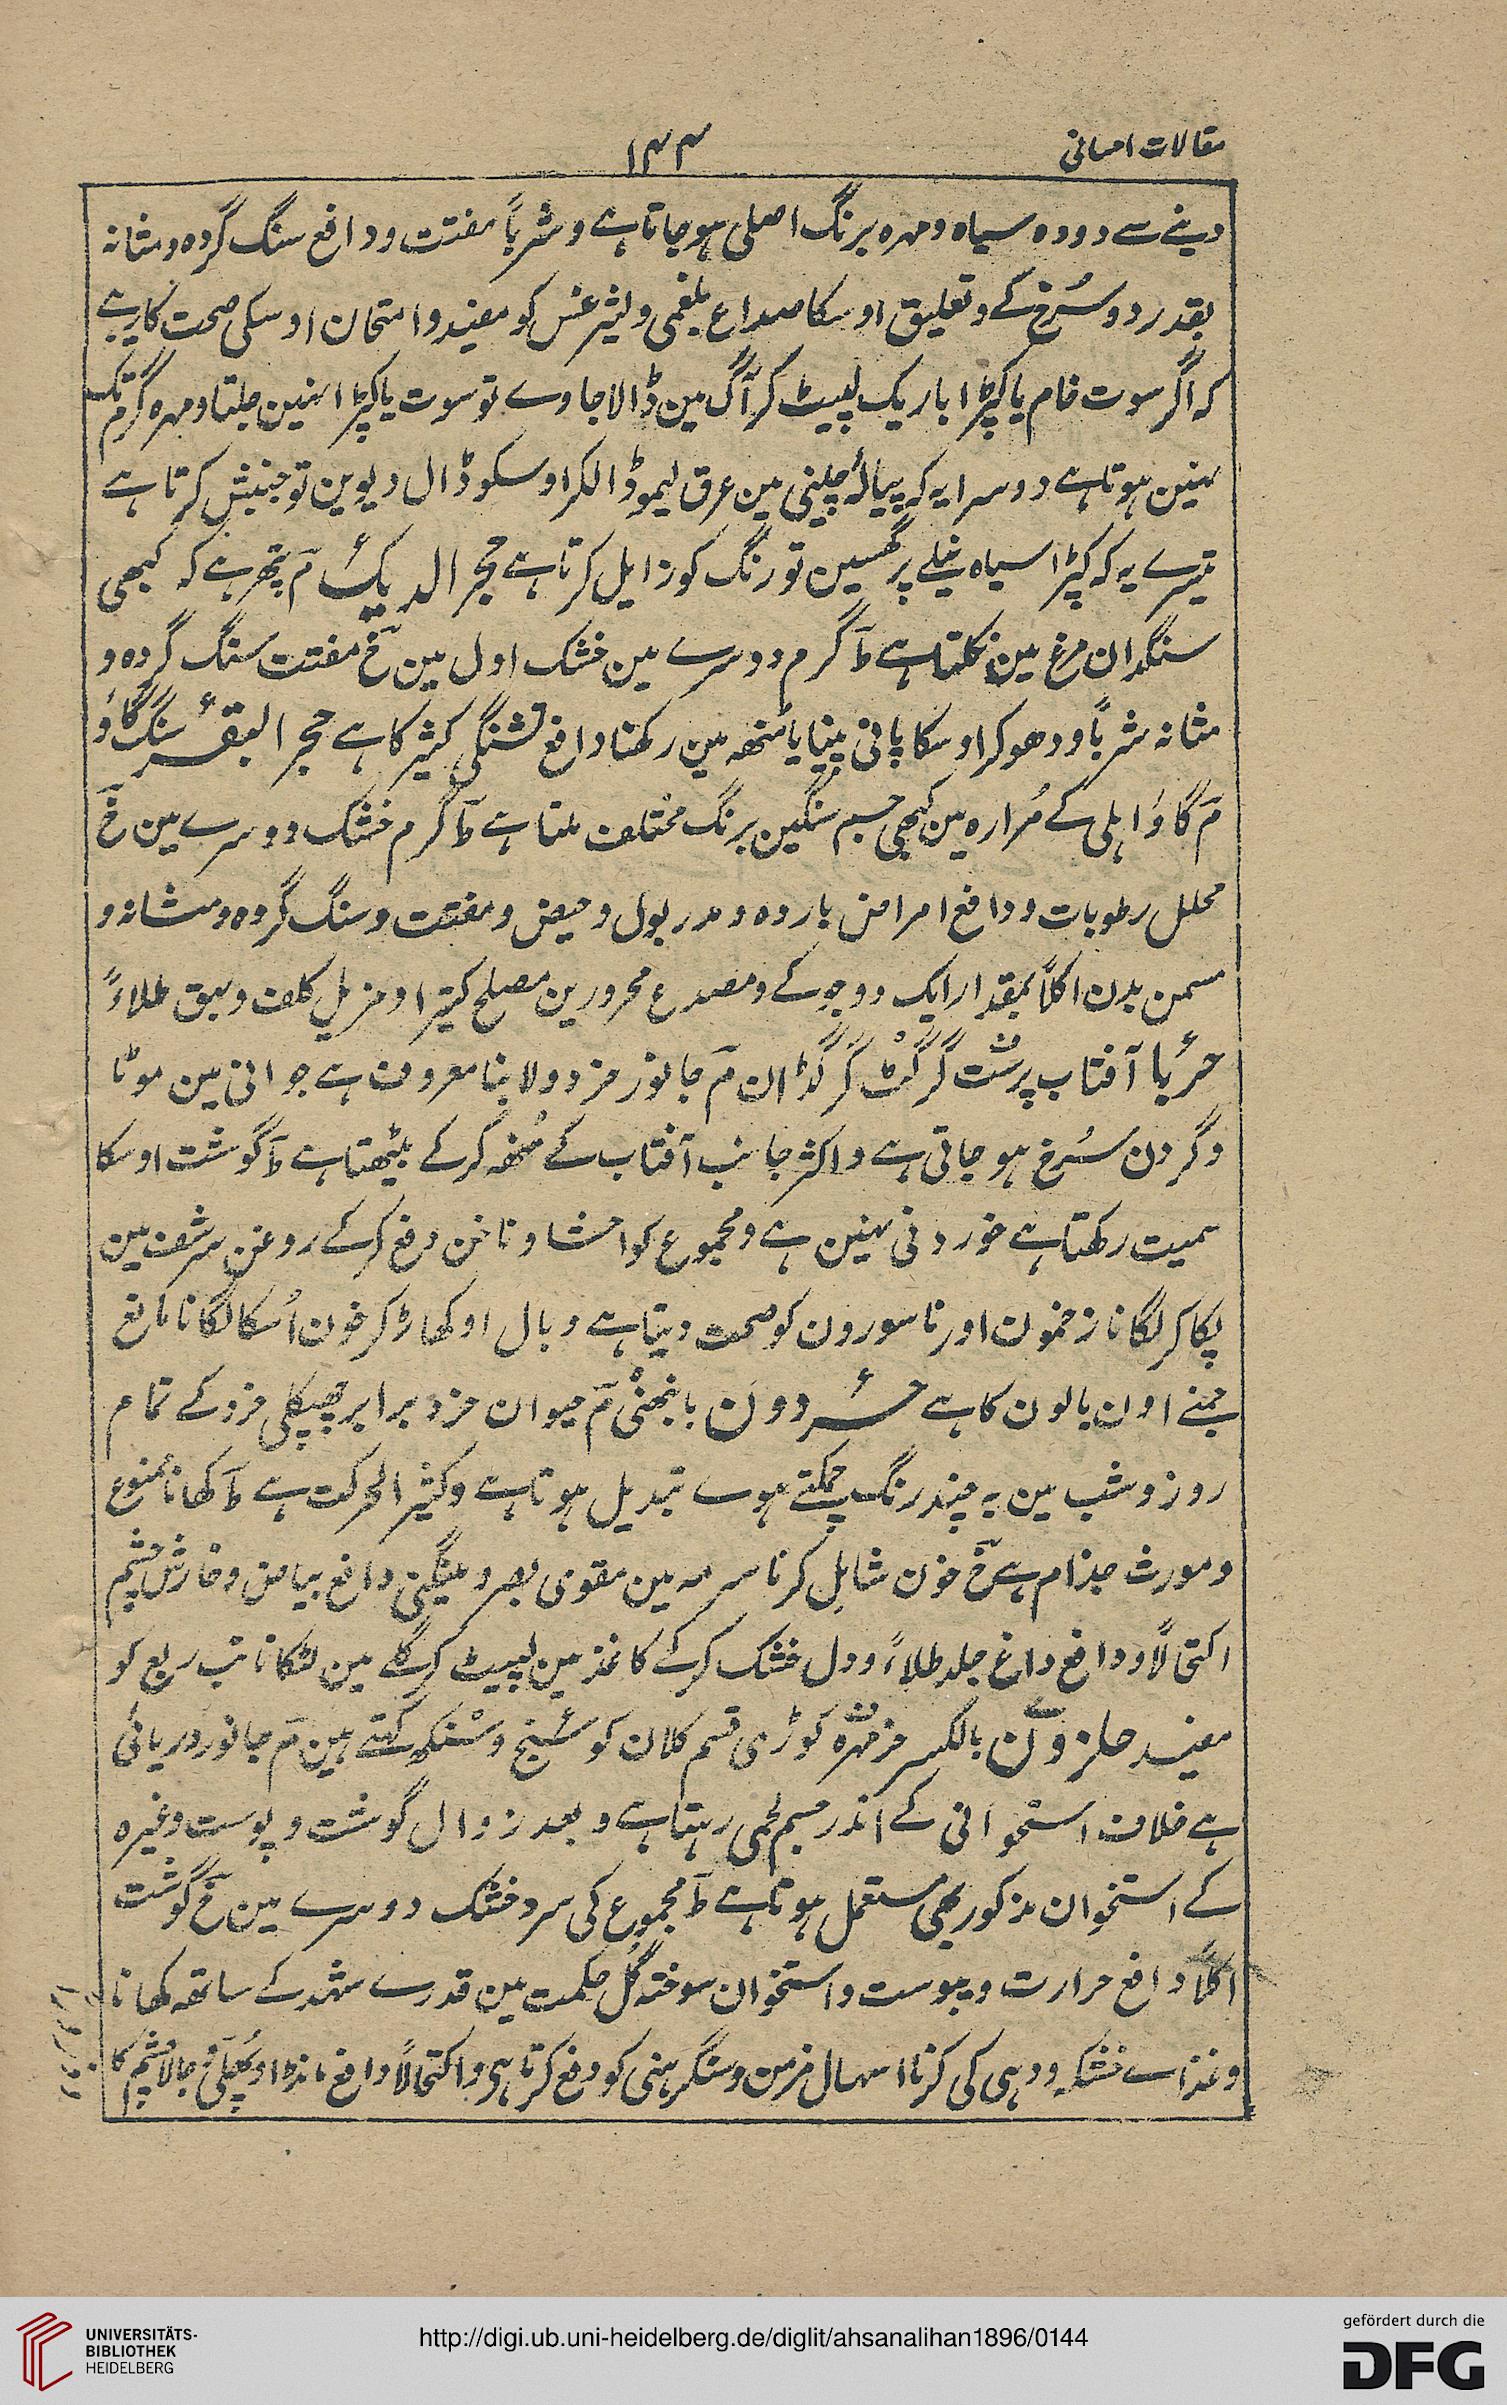 مقالات احسانی
۱۴۴
دینے سے دودہ سیاہ و مہرہ برنگ اصلی ہو جاتا ہے و شرباً مفتت و دافع سنگ گردہ و مثانہ
بقدر دو سُرخ کے و تعلیق اوسکا صداع بلغمی و لیثرغس کو مفید و امتحان اوسکی صحت کا یہ ہے
کہ اگر سوت خام یا کپڑا باریک لپیٹ کر آگ مین ڈالا جاوے تو سوت یا کپڑا نہین جلتا و مہرہ گرم تک
نہین ہوتا ہے دوسرا یہ کہ پیالۂ چینی مین عرق لیمو ڈالکر اوسکو ڈال دیوین تو جنبش کرتا ہے
تیسرے یہ کہ کپڑا سیاہ نیلے پر گھسین تو رنگ کو زایل کرتا ہے حجر الدیک مؔ پتھر ہے کہ کبھی
سنگدان مرغ مین نکلتا ہے طؔ گرم دوسرے مین خشک اول مین خؔ مفتت سنگ گردہ و
مثانہ شرباً و دھوکر اوسکا پانی پینا یا مُنھہ مین رکھنا دافع تشنگی کثیر کا ہے حجر البقر سنگ گاؤ
مؔ گاؤ اہلی کے مرارہ مین کبھی جسم سنگین برنگ مختلف ملتا ہے طؔ گرم خشک دوسرے مین خؔ
محلل رطوبات و دافع امراض باردہ و مدر بول و حیض و مفتت و سنگ گردہ و مثانہ و
مسمن بدن اکلاً بمقدار ایک دو جو کے و مصدع محرورین مصلح کتیرا و مزیل کلف و بہق طلاءً
حربا آفتاب پرست گرگٹ گرگڈان مؔ جانور خزد ولانبا معروف ہے جوانی مین موٹا
و گردن سُرخ ہو جاتی ہے و اکثر جانب آفتاب کے مُنھہ کرکے بیٹھتا ہے طؔ گوشت اوسکا
سمیت رکھتا ہے خوردنی نہین ہے و مجموع کو احشا و ناخن دفع کرکے روغن سرشف مین
پکا کر لگانا زخمون اور ناسورون کو صحت دیتا ہے و بال اوکھاڑ کر خون اُسکا لگانا مانع
جمنے اون بالون کا ہے حردون بانبھنی مؔ حیوان خزد برابر چھپکلی خزد کے تمام
روز و شب مین بہ چند رنگ چمکتے ہوے تبدیل ہوتا ہے و کثیر الحرکت ہے طؔ کھانا ممنوع
و مورث جذام ہے خؔ خون شامل کرنا سرمہ مین مقوی بصر و مینگنی دافع بیاض و خارش چشم
اکتحالاً و دافع داغ جلد طلاءً و دل خشک کرکے کاغذ مین لپیٹ کر گلے مین لٹکانا تپ ربع کو
مفید حلزون بالکسر خرمہرہ کوڑی قسم کلان کو سنج و سنکھ کہتے ہین مؔ جانور دریائی
ہے غلاف استخوانی کے اندر جسم لحمی رہتا ہے و بعد زوال گوشت و پوست وغیرہ
کے استخوان مذکور بھی مستعمل ہوتا ہے طؔ مجموع کی سرد خشک دوسرے مین خؔ گوشت
اکلاً دافع حرارت و یبوست و استخوان سوختہ گل حکمت مین قدرے شہد کے ساتھہ کھانا
و غذا سے خشکہ و دہی کی کرنا اسہال مزمن و سنگرہنی کو دفع کرتا ہی و اکتحالاً دافع مانڈا و پُھلی و جالا چشم کا
UNIVERSITÄTS-
BIBLIOTHEK
HEIDELBERG
http://digi.ub.uni-heidelberg.de/diglit/ahsanalihan1896/0144
gefördert durch die
DFG